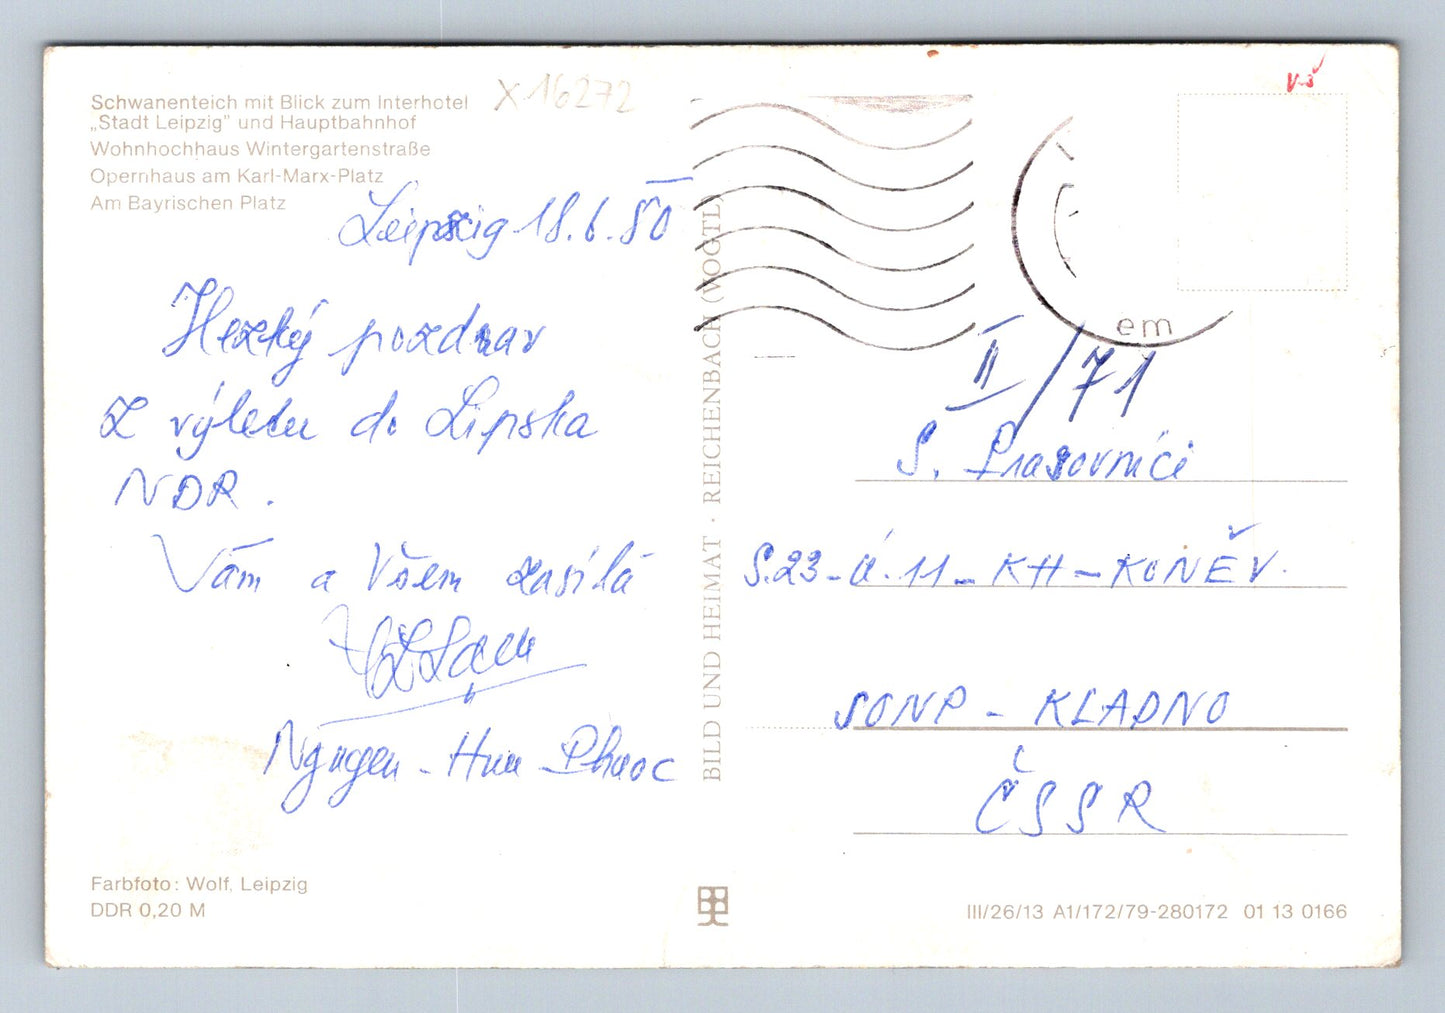 Schwanenteich mit Blick zum Interhotel
„Stadt Leipzig" und Hauptbahnhof
Wohnhochhaus Wintergartenstraße
Opernhaus am Karl-Marx-Platz
Am Bayrischen Platz
X 16272
Leipzig 18.6.80
Hezký pozdrav
z výletu do Lipska
NDR.
Vám a Všem zasílá
Nguyen - Huu - Phuoc
Farbfoto: Wolf, Leipzig
DDR 0,20 M
BILD UND HEIMAT · REICHENBACH (VOGTL)
em
II/71
S. Pracovníci
S.23-Ú.11-KH-KONĚV.
SONP - KLADNO
ČSSR
III/26/13 A1/172/79-280172 01 13 0166